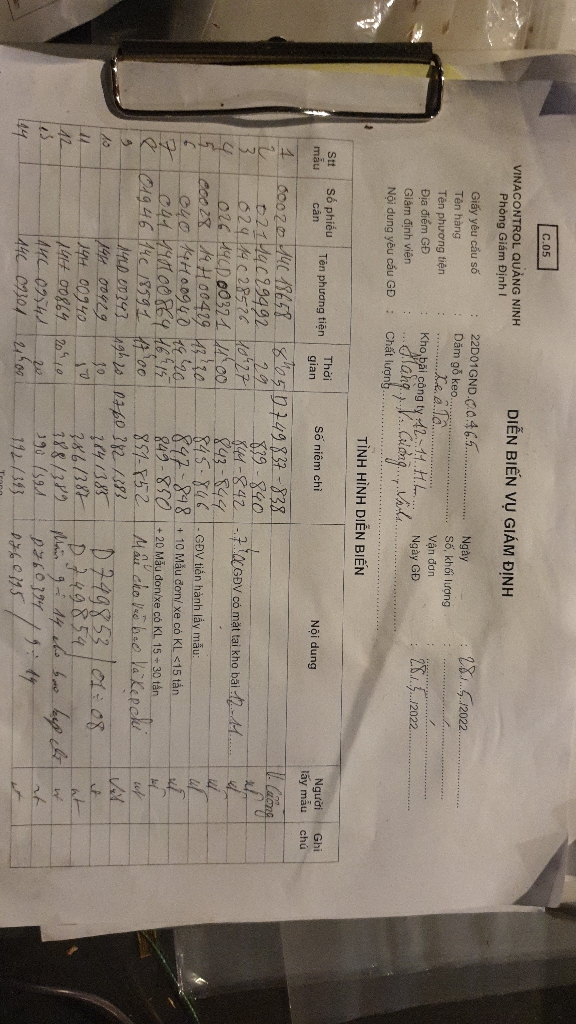 C.05
VINACONTROL QUẢNG NINH
Phòng Giám Định I
DIỄN BIẾN VỤ GIÁM ĐỊNH
Giấy yêu cầu số : 22D01GND.C0465 Ngày : 28/5/2022
Tên hàng : Dăm gỗ keo Số, khối lượng :
Tên phương tiện : Xe ô tô Vận đơn :
Địa điểm GĐ : Kho,bãi công ty 12-11.H.L Ngày GĐ : 28/5/2022
Giám định viên : V. Cường
Nội dung yêu cầu GĐ : Chất lượng
TÌNH HÌNH DIỄN BIẾN
Stt mẫu Số phiếu cân Tên phương tiện Thời gian Số niêm chì Nội dung Người lấy mẫu Ghi chú
1 00020 14C 18658 8h05 D749837-838 V. Cường
2 021 14C 29492 839-840
3 024 14C 28526 10h27 841-842 GĐV có mặt tại kho bãi 12-11
4 026 00321 11h00 843-844
5 00028 14H 00429 13h30 845-846 - GĐV tiến hành lấy mẫu:
6 040 14H 00940 847-848 + 10 Mẫu đơn/ xe có KL <15 tấn
7 041 00864 16h15 849-850 + 20 Mẫu đơn/xe có KL 15 ÷ 30 tấn
8 01946 14C 18591 17h00 851-852
9 00343 19h20 D760 382/383
10 14H 00429 30 384/385 D749853/01÷08
11 14H 00940 50 386/387 D749854
12 14H 00864 20h10 388/389
13 14C 00541 20 390/391 D760394/9÷14
14 14C 00301 21h00 392/393 D760395